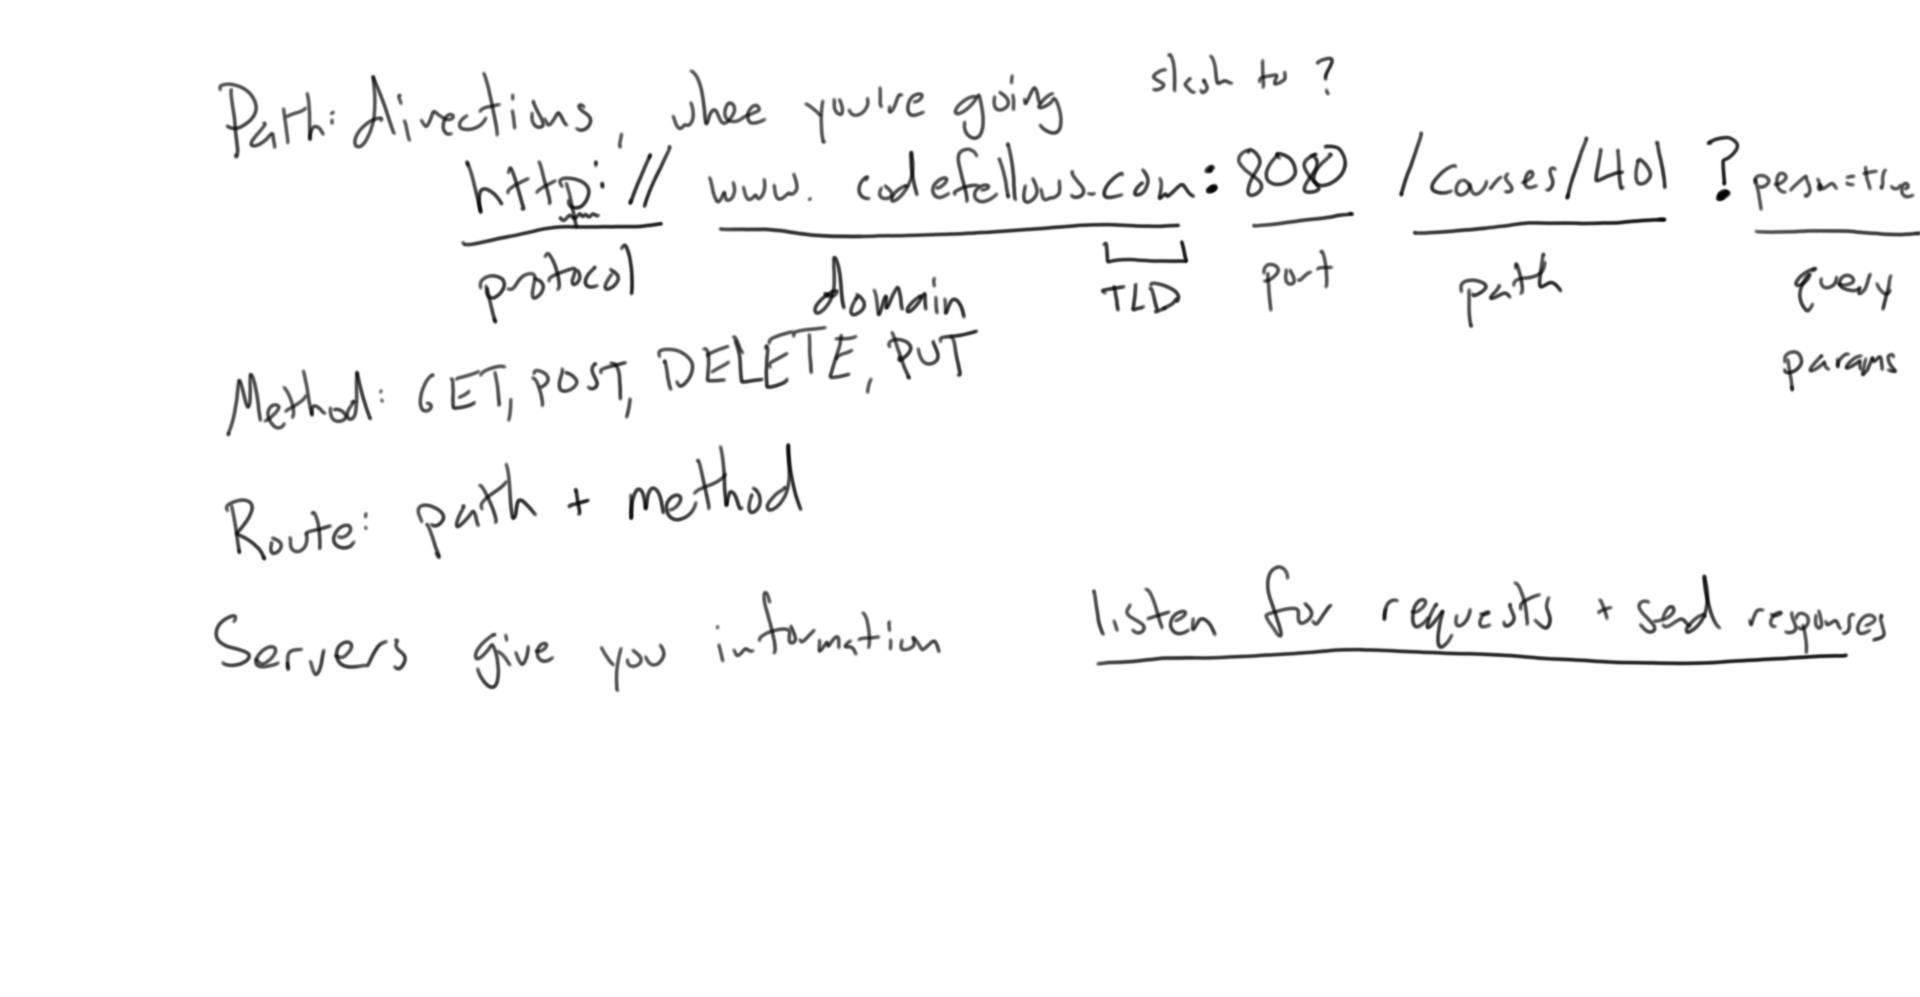 Path: directions, whee you're going slash to ?
http:// www. codefellows.com: 8080 /courses/401 ?
protocol domain TLD port path query
params
Method: GET, POST, DELETE, PUT
Route: path + method
Servers give you information listen for requests + send responses